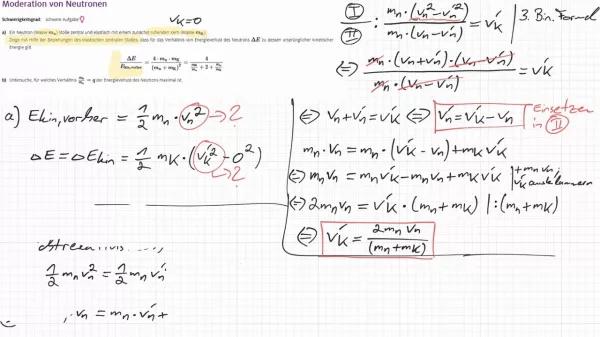 Moderation von Neutronen
Schwierigkeitsgrad: schwere Aufgabe
v_K=0
a) Ein Neutron (Masse m_n) stößt zentral und elastisch mit einem zunächst ruhenden Kern (Masse m_K).
Zeige mit Hilfe der Beziehungen des elastischen zentralen Stoßes, dass für das Verhältnis von Energieverlust des Neutrons ΔE zu dessen ursprünglicher kinetischer
Energie gilt
ΔE / E_kin,vorher = 4 · m_n · m_K / (m_n + m_K)² = 4 / (m_n/m_K + 2 + m_K/m_n)
b) Untersuche, für welches Verhältnis = q der Energieverlust des Neutrons maximal ist.
a) Ekin,vorher = 1/2 m_n · v_n² → ?
ΔE = ΔEkin = 1/2 m_K · (v_K'² - 0²)
→ ?
1/2 m_n v_n² = 1/2 m_n v_n'
v_n = m_n · v_n' +
I / II : m_n · (v_n² - v_n'²) / m_n · (v_n - v_n') = v_K' | 3. Bin. Formel
⇔ m_n · (v_n + v_n') · (v_n - v_n') / m_n · (v_n - v_n') = v_K'
⇔ v_n + v_n' = v_K' ⇔ v_n' = v_K' - v_n Einsetzen in II
m_n · v_n = m_n · (v_K' - v_n) + m_K v_K'
⇔ m_n v_n = m_n v_K' - m_n v_n + m_K v_K' | + m_n v_n; v_K' ausklammern
⇔ 2 m_n v_n = v_K' · (m_n + m_K) | : (m_n + m_K)
⇔ v_K' = 2 m_n v_n / (m_n + m_K)